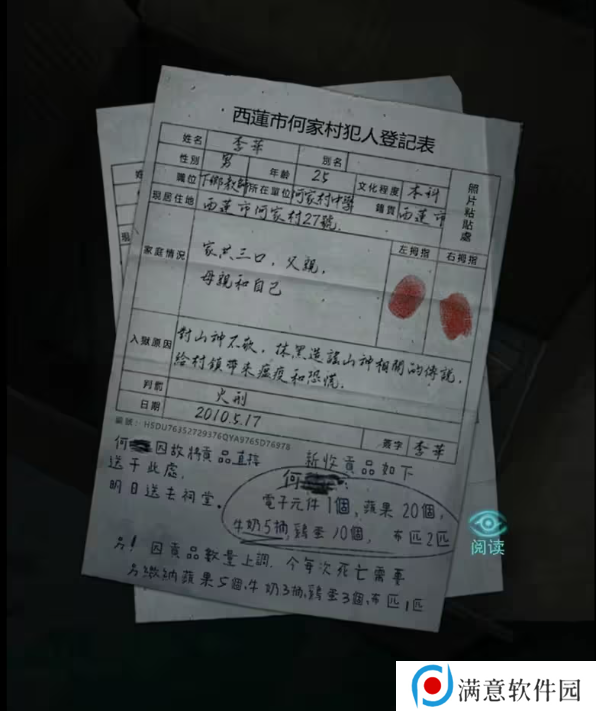 西蓮市何家村犯人登記表
姓名 李華 別名
性別 男 年齡 25 文化程度 本科
職位 下鄉教師 所在單位 何家村中學 籍貫 西蓮市
現居住地 西蓮市何家村27號,
照片粘貼處
家庭情況 家共三口，父親，
母親和自己
左拇指 右拇指
入獄原因 對山神不敬，抹黑造謠山神相關的傳說，
給村鎮帶來瘟疫和恐慌，
判罰 火刑
日期 2010.5.17 簽字 李華
何 因故将貢品直接
送于此處，
明日送去祠堂。
新收貢品如下
何
電子元件1個，蘋果20個，
牛奶5抽，鷄蛋10個， 布匹2匹
另！因貢品數量上調，今每次死亡需要
另繳納蘋果5個，牛奶3抽，鷄蛋3個，布匹1匹
阅读
满意软件园